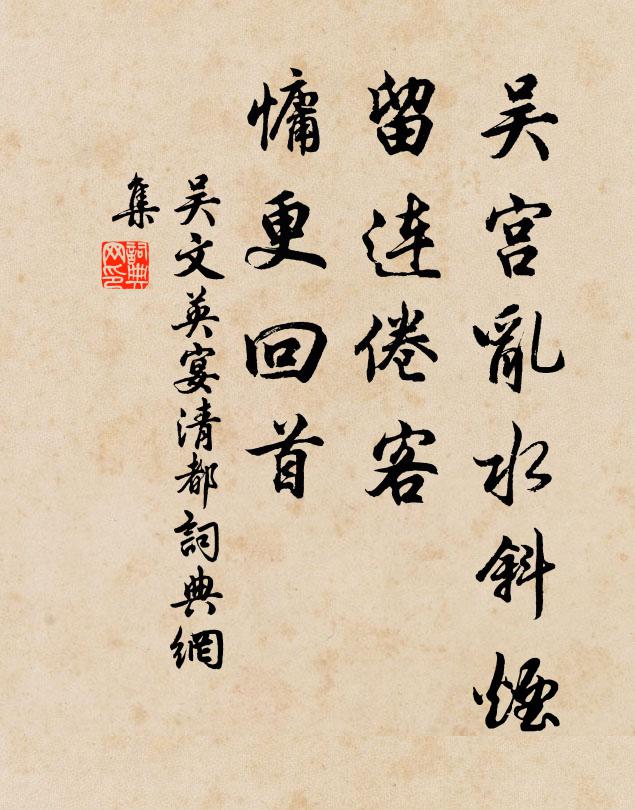 吴宫亂水斜煙
留连倦客
慵更回首
吴文英宴清都詞典網
集
詞典网印